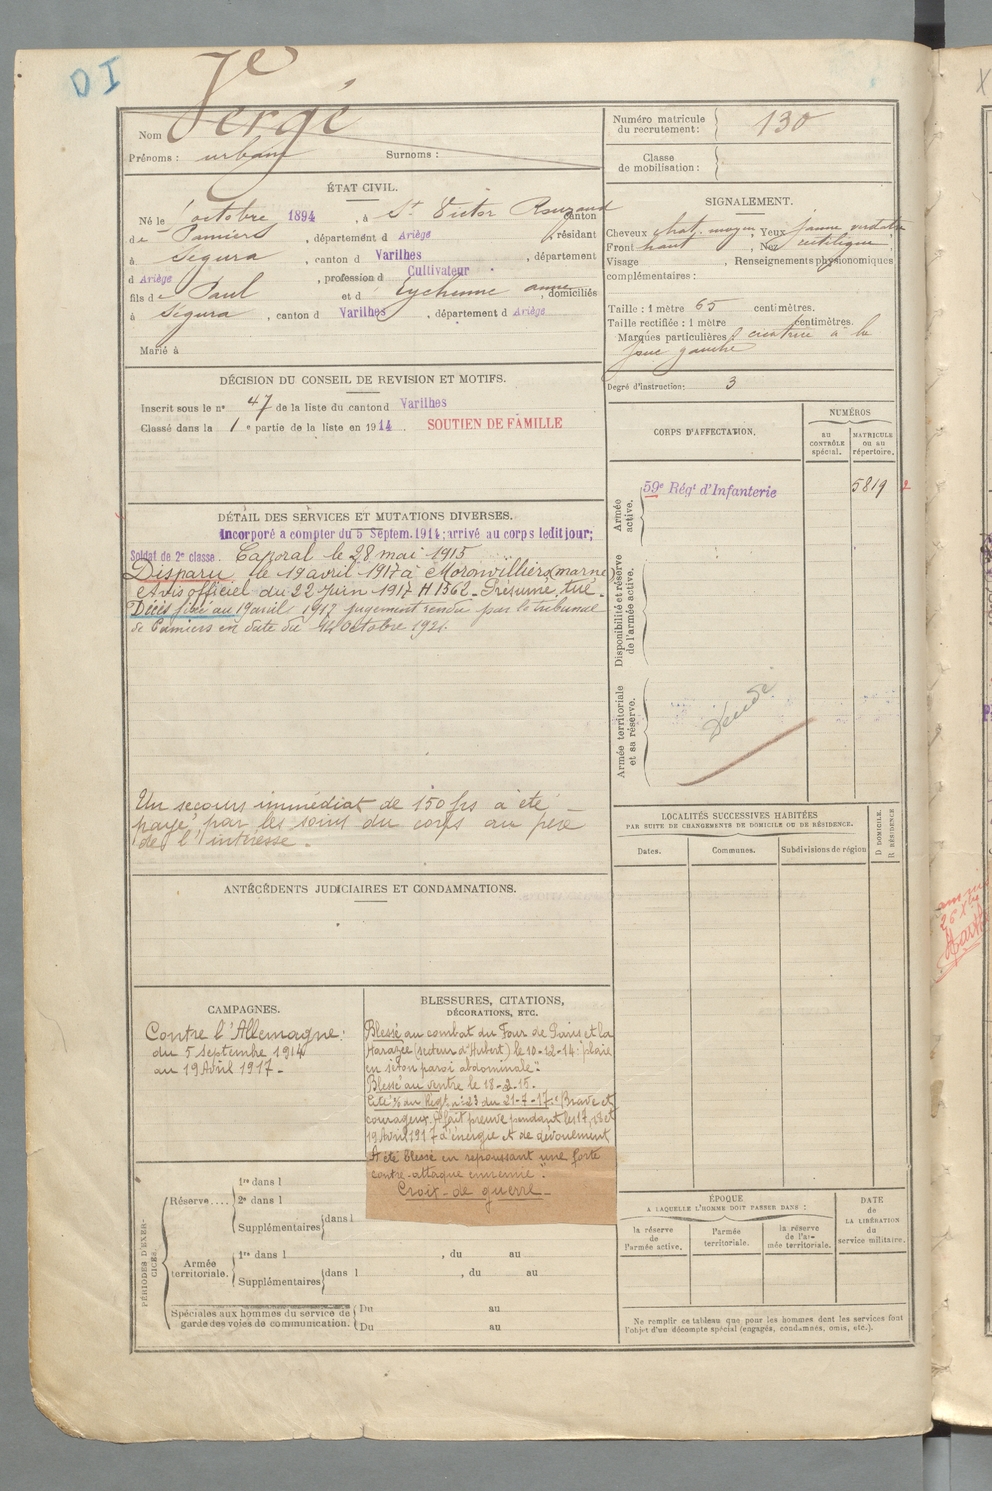 D I
Vergé
Nom
Prénoms : urbain Surnoms :
Numéro matricule du recrutement : 130
Classe de mobilisation :
ÉTAT CIVIL.
Né le 1 octobre 1894, à St Victor Rouzaud canton
de Pamiers, département d Ariège, résidant
à Ségura, canton d Varilhes, département
d Ariège, profession d Cultivateur
fils de Paul et d Eychenne anne, domiciliés
à Ségura, canton d Varilhes, département d Ariège
Marié à
SIGNALEMENT.
Cheveux chat. moyen, Yeux jaune verdatre
Front haut, Nez rectiligne;
Visage , Renseignements physionomiques
complémentaires :
Taille : 1 mètre 65 centimètres.
Taille rectifiée : 1 mètre centimètres.
Marques particulières : cicatrice à la
joue gauche
Degré d'instruction: 3
DÉCISION DU CONSEIL DE REVISION ET MOTIFS.
Inscrit sous le n° 47 de la liste du canton d Varilhes
Classé dans la 1 e partie de la liste en 1914. SOUTIEN DE FAMILLE
CORPS D'AFFECTATION.
NUMÉROS
au CONTRÔLE spécial.
MATRICULE ou au répertoire.
Armée active.
59e Régt d'Infanterie 5819
Disponibilité et réserve de l'armée active.
Armée territoriale et sa réserve.
DÉTAIL DES SERVICES ET MUTATIONS DIVERSES.
Incorporé à compter du 5 Septem. 1914; arrivé au corps ledit jour;
Soldat de 2e classe. Caporal le 28 mai 1915
Disparu le 19 avril 1917 à Moronvilliers (marne)
Avis officiel du 22 juin 1917 H 1362. Présumé tué.
Décès fixé au 19 avril 1917 jugement rendu par le tribunal
de Pamiers en date du 14 Octobre 1921.
Un secours immédiat de 150 frs a été
payé par les soins du corps au père
de l'intéressé.
LOCALITÉS SUCCESSIVES HABITÉES
PAR SUITE DE CHANGEMENTS DE DOMICILE OU DE RÉSIDENCE.
Dates. Communes. Subdivisions de région D DOMICILE. R RÉSIDENCE
ANTÉCÉDENTS JUDICIAIRES ET CONDAMNATIONS.
CAMPAGNES.
Contre l'Allemagne :
du 5 septembre 1914
au 19 Avril 1917 -
BLESSURES, CITATIONS,
DÉCORATIONS, ETC.
Blessé au combat du Four de Paris et la
Harazée (secteur d'Hubert) le 10-12-14: "plaie
en séton paroi abdominale".
Blessé au ventre le 18-2-15.
Cité % du Régt. n° 23 du 21-7-17: "Brave et
courageux. A fait preuve pendant les 17, 18 et
19 Avril 1917 d'énergie et de dévouement
A été blessé en repoussant une forte
contre-attaque ennemie".
Croix de guerre
PÉRIODES D'EXERCICES.
Réserve....
1re dans l
2e dans l
Supplémentaires dans l
Armée territoriale.
1re dans l , du au
Supplémentaires dans l , du au
Spéciales aux hommes du service de garde des voies de communication.
Du au
Du au
ÉPOQUE
A LAQUELLE L'HOMME DOIT PASSER DANS :
la réserve de l'armée active.
l'armée territoriale.
la réserve de l'armée territoriale.
DATE de LA LIBÉRATION du service militaire.
Ne remplir ce tableau que pour les hommes dont les services font
l'objet d'un décompte spécial (engagés, condamnés, omis, etc.).